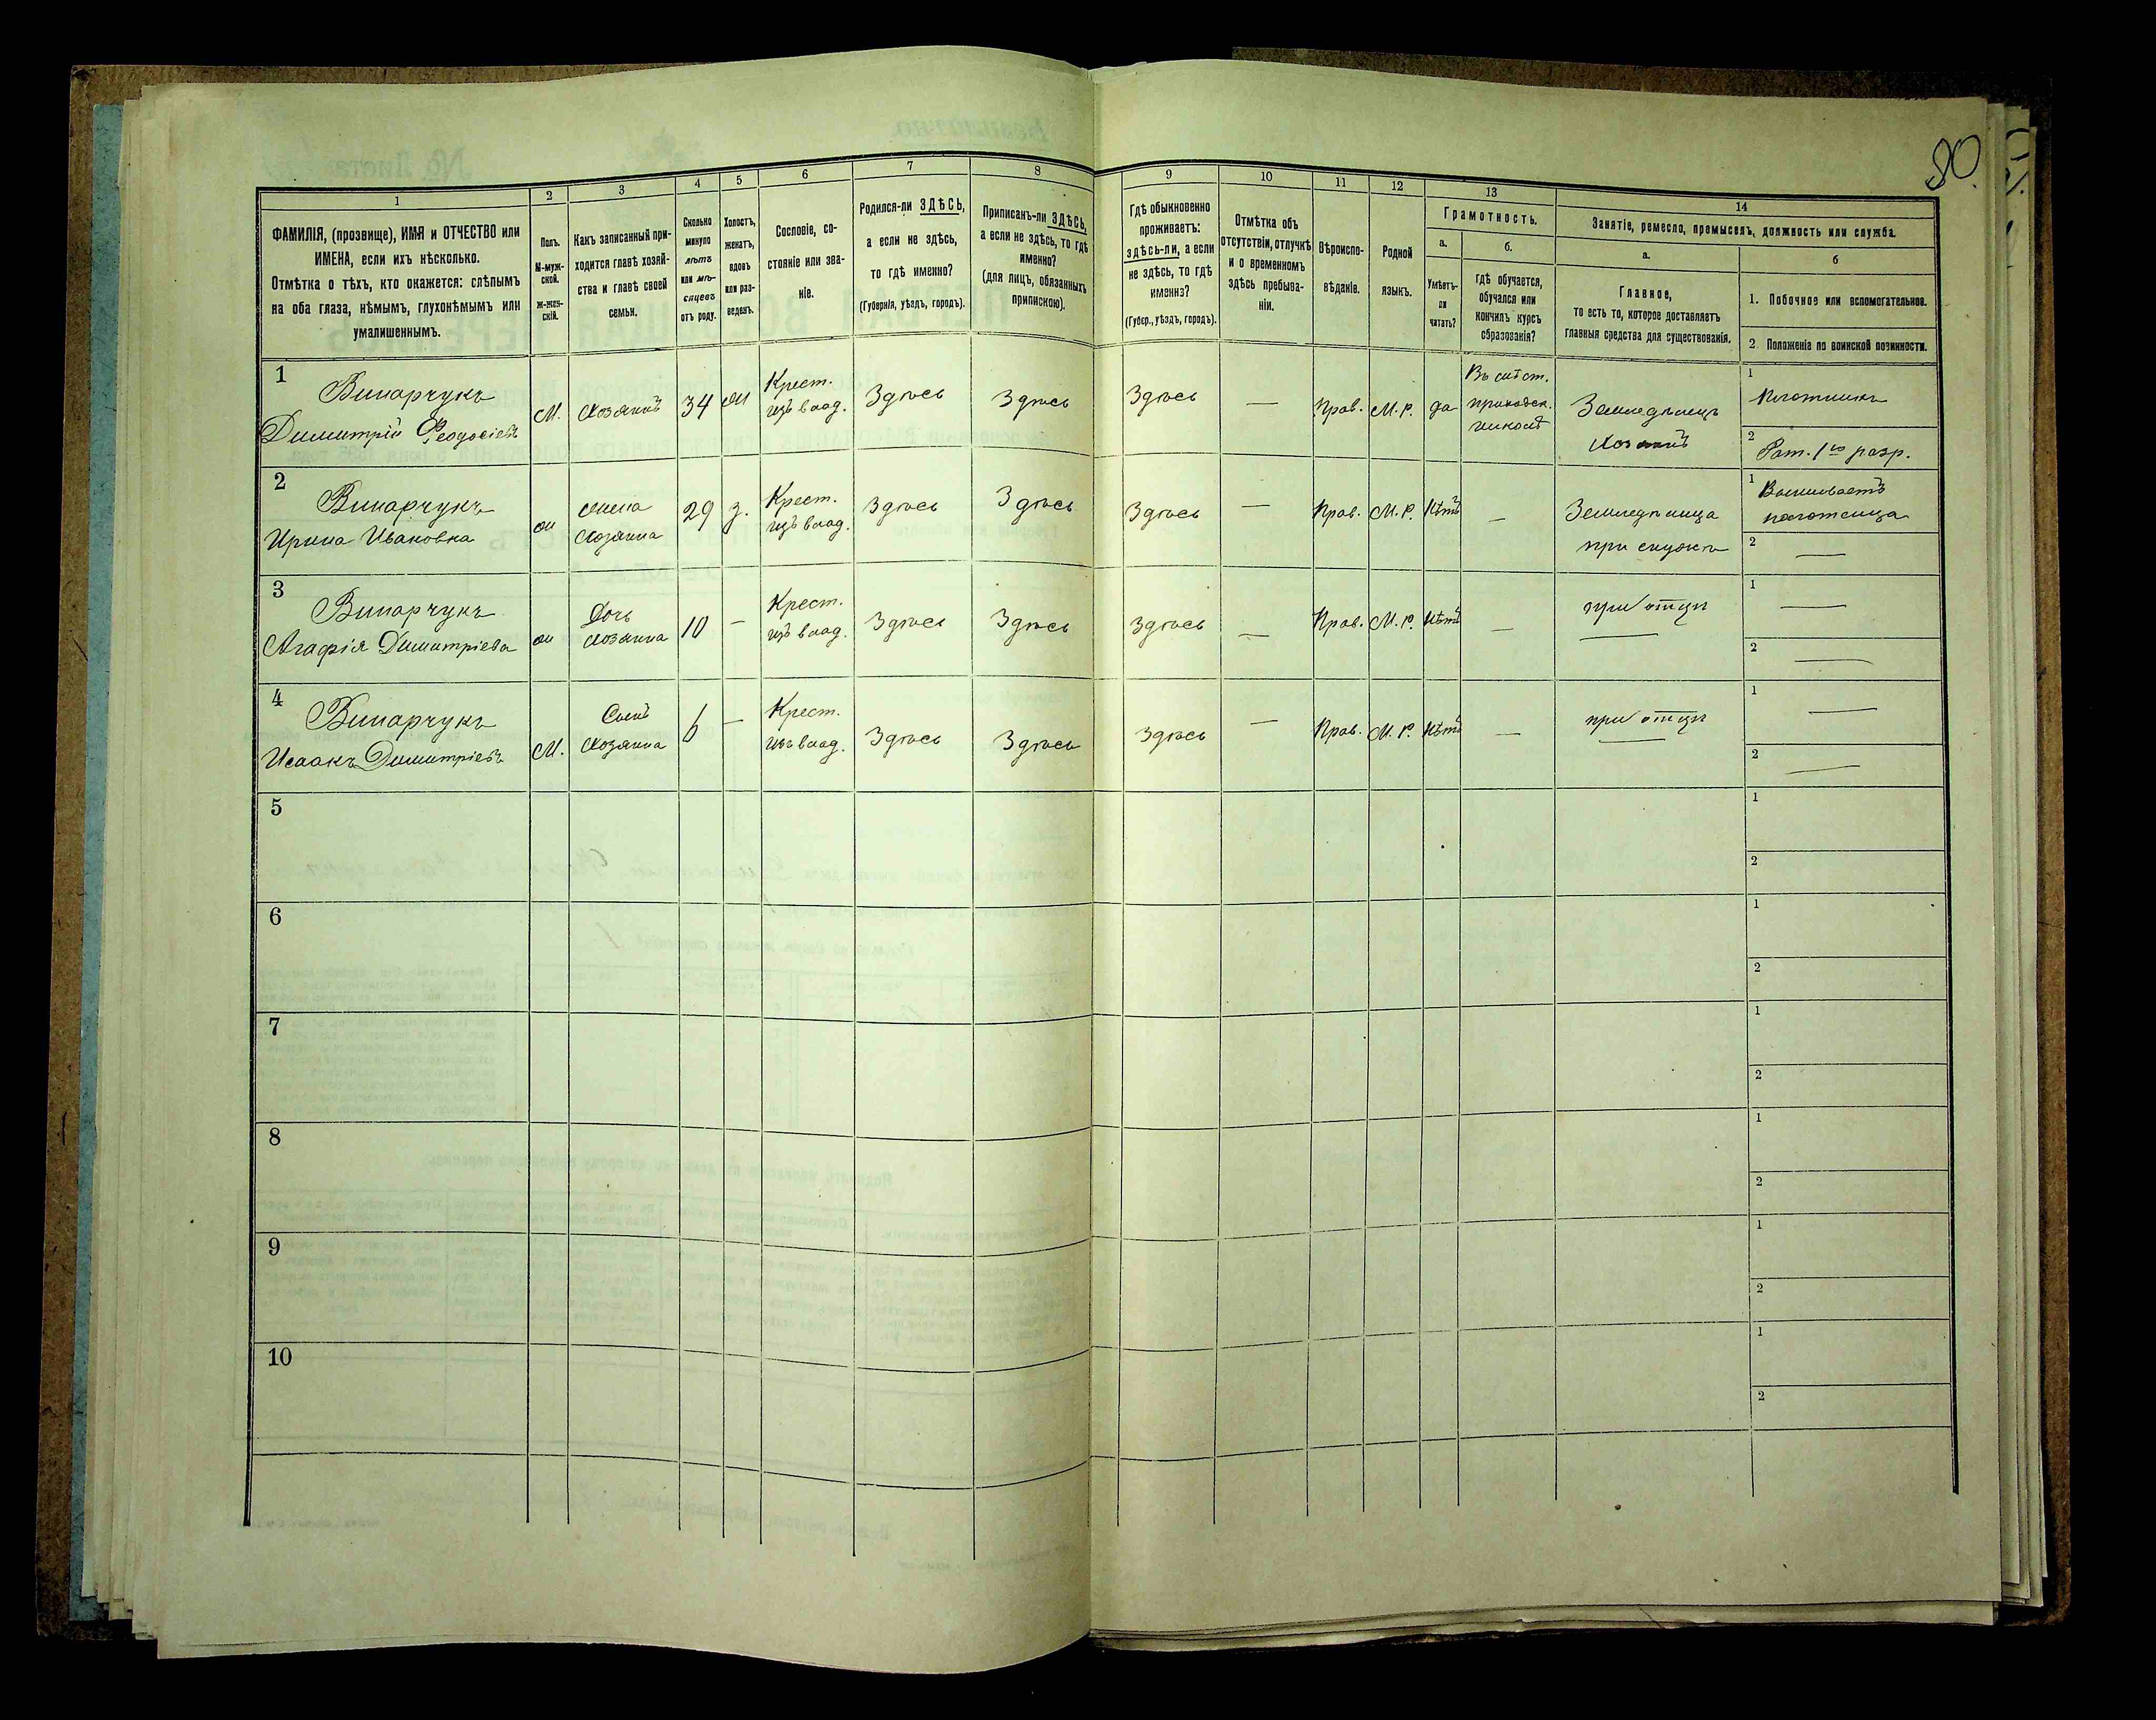 80.
1
2
3
4
5
6
7
8
9
10
11
12
13
14
ФАМИЛІЯ, (прозвище), ИМЯ и ОТЧЕСТВО или
ИМЕНА, если ихъ нѣсколько.
Отмѣтка о тѣхъ, кто окажется: слѣпымъ
на оба глаза, нѣмымъ, глухонѣмымъ или
умалишеннымъ.
Полъ.
М-муж-
ской.
Ж-жен-
скій.
Какъ записанный при-
ходится главѣ хозяй-
ства и главѣ своей
семьи.
Сколько
минуло
лѣтъ
или мѣ-
сяцевъ
отъ роду.
Холостъ,
женатъ,
вдовъ
или раз-
веденъ.
Сословіе, со-
стояніе или зва-
ніе.
Родился-ли ЗДѢСЬ,
а если не здѣсь,
то гдѣ именно?
(Губернія, уѣздъ, городъ).
Приписанъ-ли ЗДѢСЬ,
а если не здѣсь, то гдѣ
именно?
(для лицъ, обязанныхъ
припискою).
Гдѣ обыкновенно
проживаетъ:
здѣсь-ли, а если
не здѣсь, то гдѣ
именно?
(Губер., уѣздъ, городъ).
Отмѣтка объ
отсутствіи, отлучкѣ
и о временномъ
здѣсь пребыва-
ніи.
Вѣроиспо-
вѣданіе.
Родной
языкъ.
Грамотность.
а.
Умѣетъ-
ли
читать?
б.
Гдѣ обучается,
обучался или
кончилъ курсъ
образованія?
Занятіе, ремесло, промыселъ, должность или служба.
а.
Главное,
то есть то, которое доставляетъ
главныя средства для существованія.
б
1. Побочное или вспомогательное.
2 Положеніе по воинской повинности.
1
Винарчукъ
Димитрій Ѳеодосіевъ
М.
Хозяинъ
34
ж
Крест.
изъ влад.
Здѣсь
Здѣсь
Здѣсь
—
Прав.
М. Р.
да
приходск.
школѣ
Земледѣлецъ
Хозяинъ
1
Плотникъ
2
Рат. 1го разр.
2
Винарчукъ
Ирина Ивановна
ж
жена
Хозяина
29
з.
Крест.
изъ влад.
Здѣсь
Здѣсь
Здѣсь
—
Прав.
М. Р.
Нѣтъ
—
Земледѣлица
при мужѣ
1
Вышиваетъ
полотенца
2
—
3
Винарчукъ
Агафія Димитріева
ж
Дочь
Хозяина
10
—
Крест.
изъ влад.
Здѣсь
Здѣсь
Здѣсь
—
Прав.
М. Р.
Нѣтъ
—
при отцѣ
—
1
—
2
—
4
Винарчукъ
Исаакъ Димитріевъ
М.
Сынъ
Хозяина
6
—
Крест.
изъ влад.
Здѣсь
Здѣсь
Здѣсь
—
Прав.
М. Р.
Нѣтъ
—
при отцѣ
—
1
—
2
—
5
1
2
6
1
2
7
1
2
8
1
2
9
1
2
10
1
2